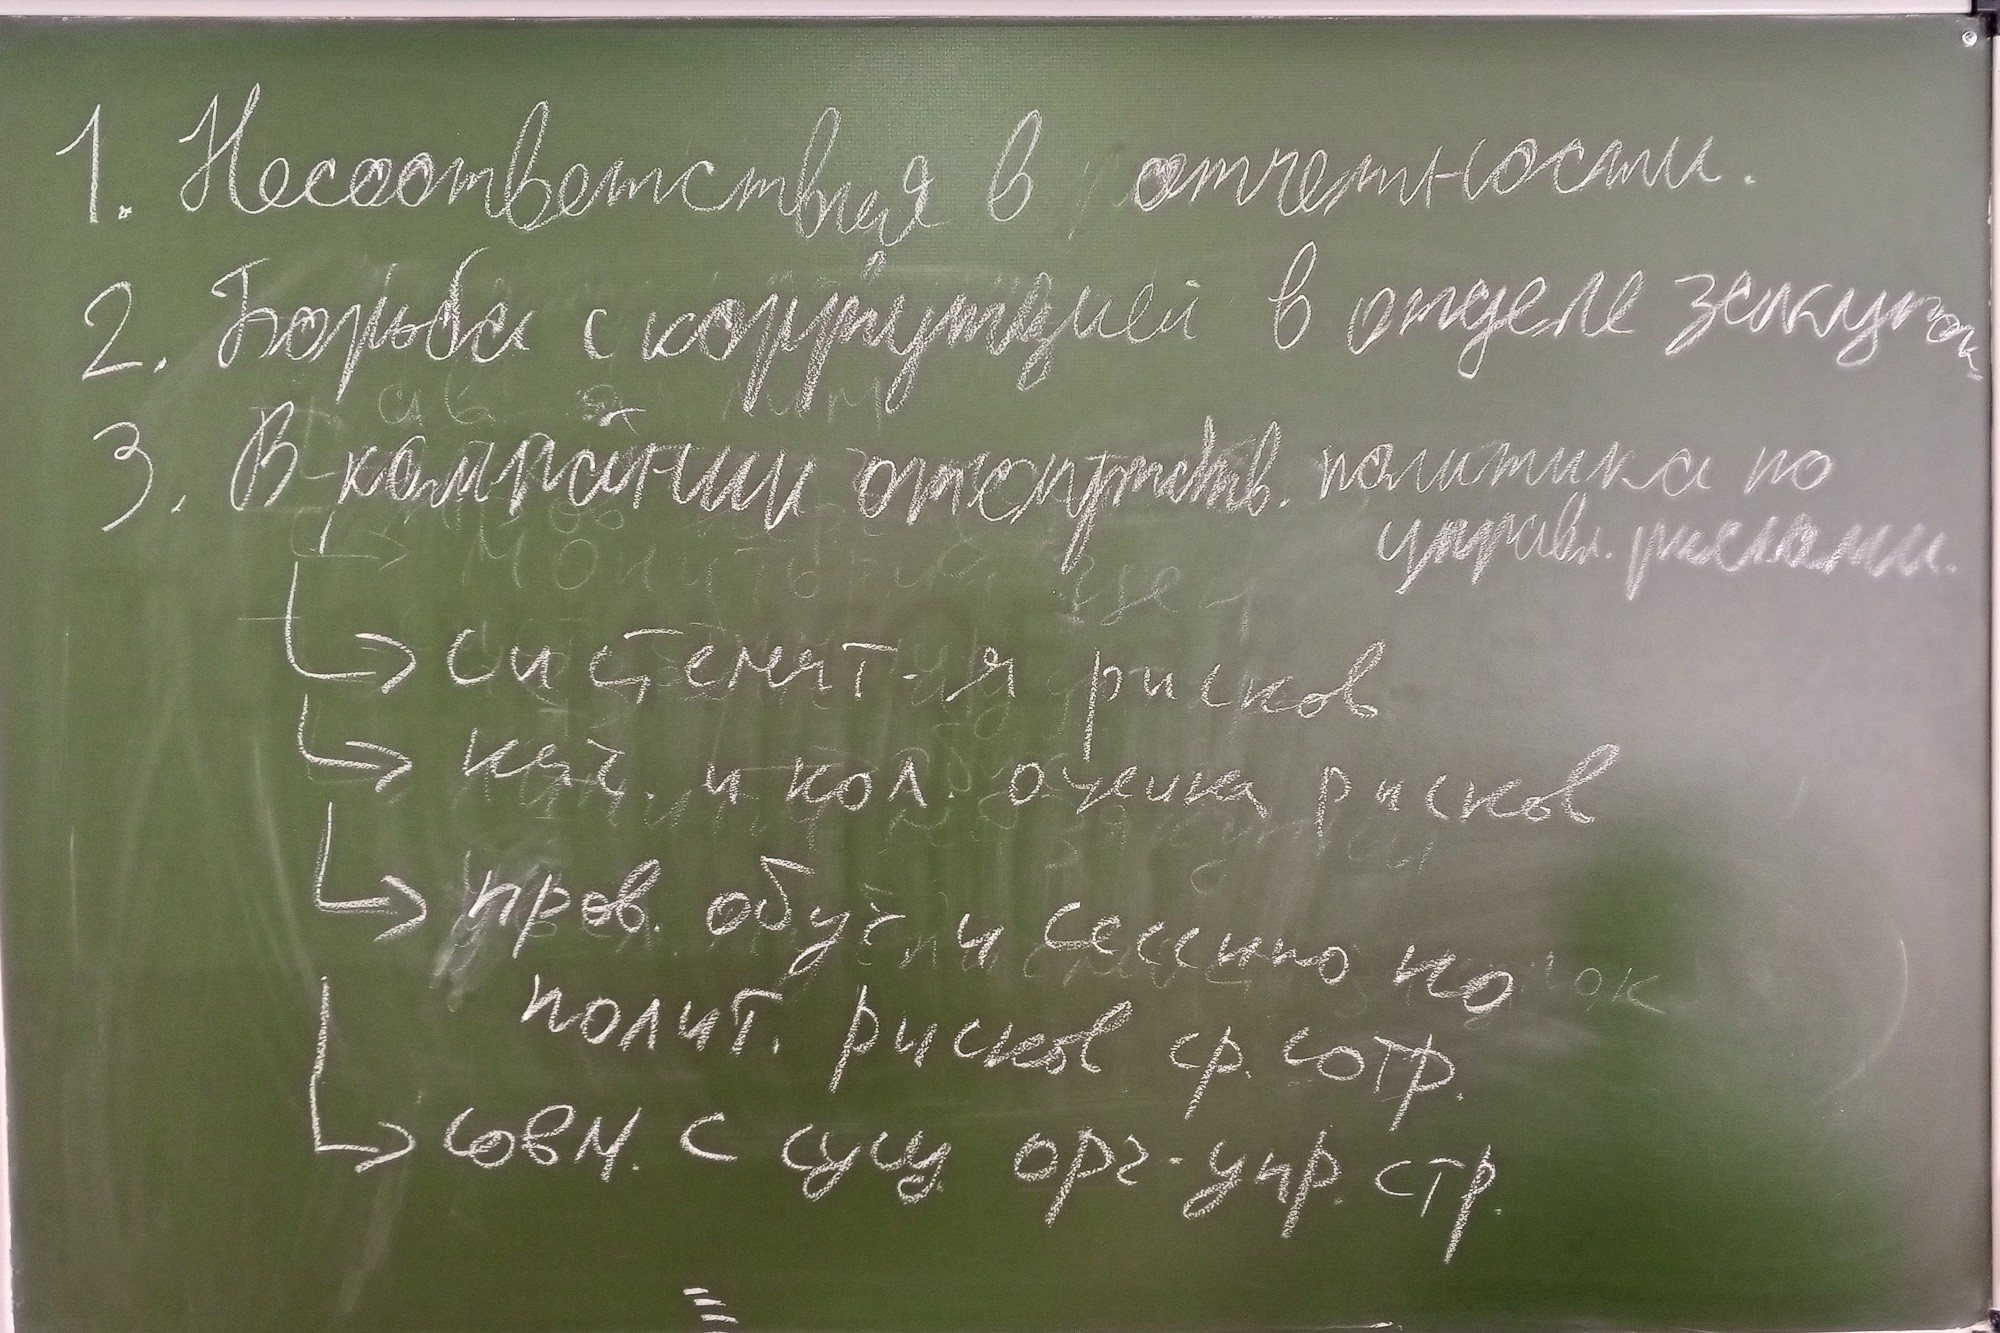 1. Несоответствия в отчетности.
2. Борьба с коррупцией в отделе закупок
3. В компании отсутств. политика по
управл. рисками.
системат-я рисков
кач. и кол. оценка рисков
пров. обуч и сессию по
полит. рисков ср. сотр.
совм. с сущ орг-упр. стр.